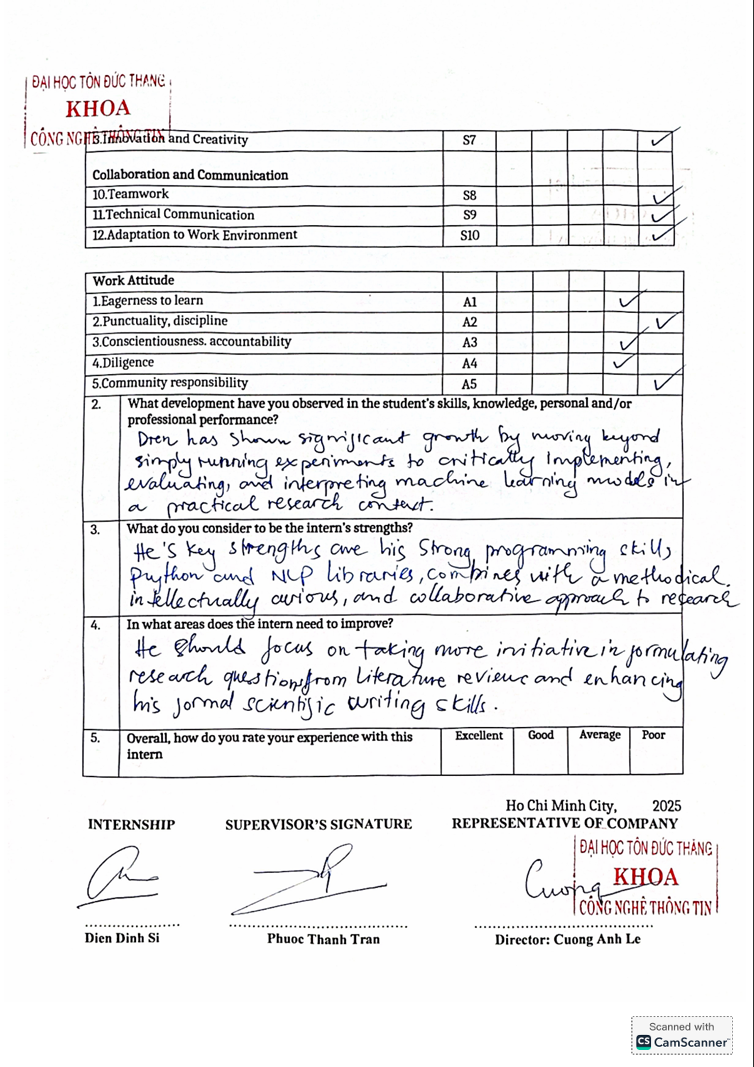 ĐẠI HỌC TÔN ĐỨC THẮNG
KHOA
CÔNG NGHỆ THÔNG TIN
Innovation and Creativity S7 ✓
Collaboration and Communication
10.Teamwork S8 ✓
11.Technical Communication S9 ✓
12.Adaptation to Work Environment S10 ✓
Work Attitude
1.Eagerness to learn A1 ✓
2.Punctuality, discipline A2 ✓
3.Conscientiousness. accountability A3 ✓
4.Diligence A4 ✓
5.Community responsibility A5 ✓
2. What development have you observed in the student's skills, knowledge, personal and/or
professional performance?
Dien has shown significant growth by moving beyond
simply running experiments to critically implementing,
evaluating, and interpreting machine learning models in
a practical research context.
3. What do you consider to be the intern's strengths?
He's key strengths are his strong programming skills,
python and NLP libraries, combines with a methodical.
intellectually curious, and collaborative approach to research
4. In what areas does the intern need to improve?
He should focus on taking more initiative in formulating
research questions from literature reviews and enhancing
his formal scientific writing skills.
5. Overall, how do you rate your experience with this Excellent Good Average Poor
intern
Ho Chi Minh City, 2025
INTERNSHIP SUPERVISOR'S SIGNATURE REPRESENTATIVE OF COMPANY
ĐẠI HỌC TÔN ĐỨC THẮNG
Cuong KHOA
CÔNG NGHỆ THÔNG TIN
Dien Dinh Si Phuoc Thanh Tran Director: Cuong Anh Le
Scanned with
CS CamScanner